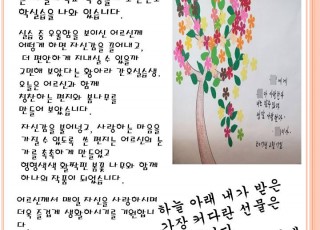 학실습을 나와 있습니다.
실습 중 우울감을 보이신 어르신께
어떻게 하면 자신감을 끌어내고,
더 편안하게 지내실 수 있을까
고민해 보았다는 황아라 간호실습생.
오늘은 어르신과 함께
칭찬하는 편지와 봄나무를
만들어 보았습니다.
자신감을 불어넣고, 사랑하는 마음을
가질 수 있도록 쓴 편지는 어르신의 눈
가를 촉촉하게 만들었고
형형색색 활짝핀 봄꽃 나무와 함께
하나의 작품이 되었습니다.
어르신께서 매일 자신을 사랑하시며
더욱 즐겁게 생활하시기를 기원합니
다.
하늘 아래 내가 받은
가장 커다란 선물은